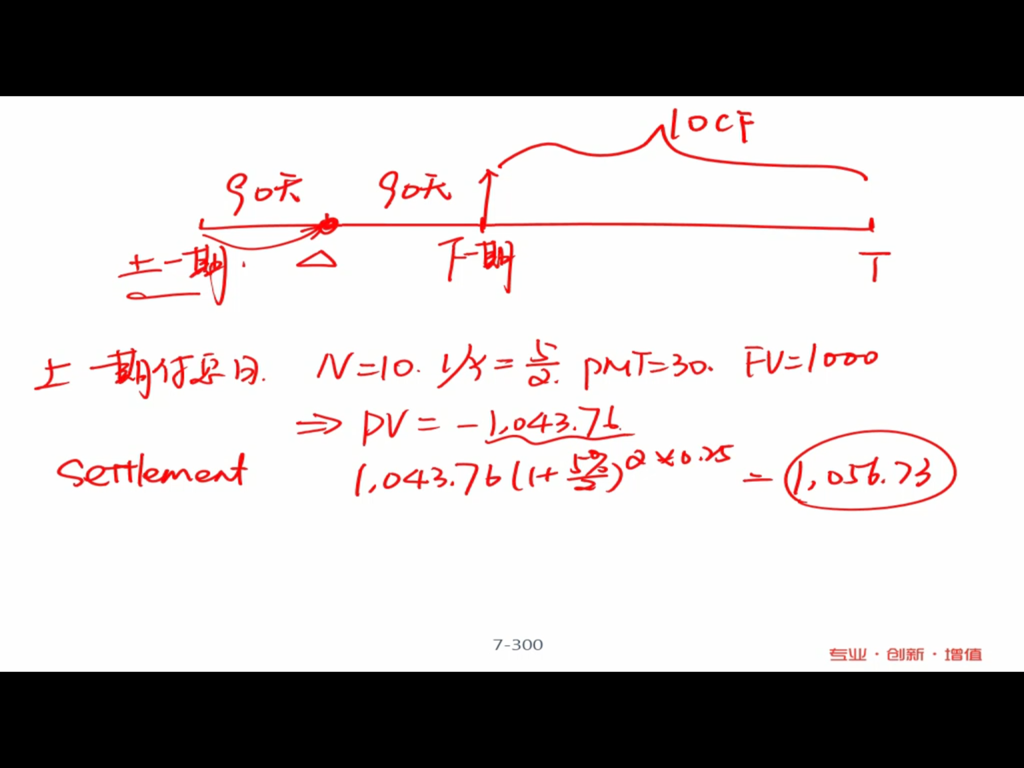 10CF
90天 90天
上一期. △ 下一期 T
上一期付息日. N=10. I/Y=5/2. PMT=30. FV=1000
⇒ PV=-1,043.76
Settlement 1,043.76(1+5%/2)^2×0.25 = 1,056.73
7-300
专业·创新·增值